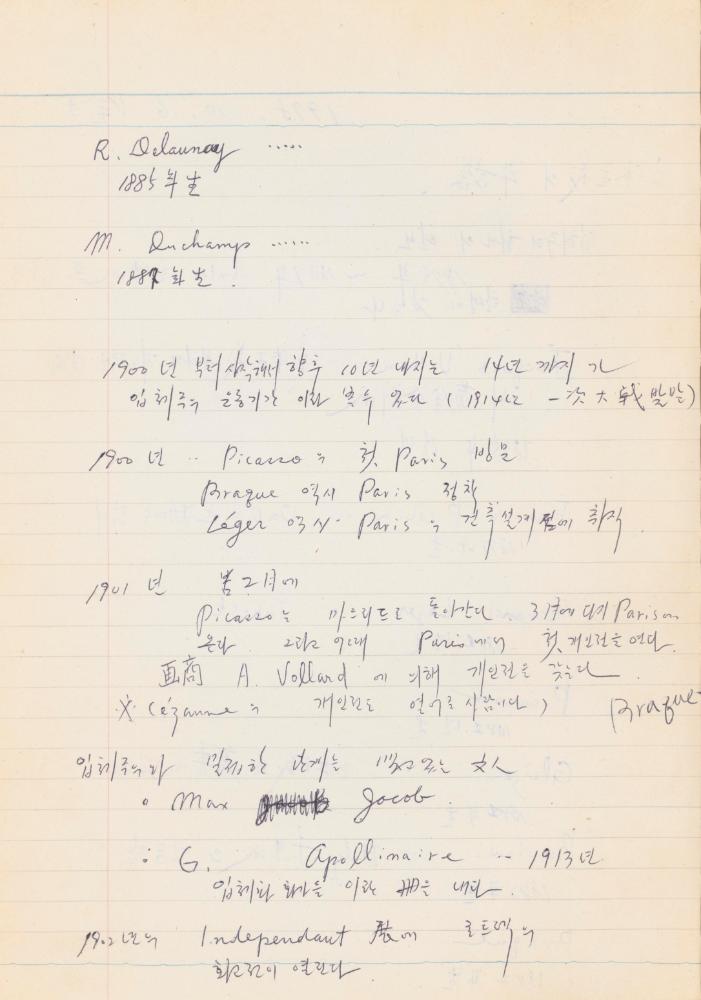 R. Delaunay .....
1885年生
M. Duchamp ......
1887年生.
1900년 부터 시작해서 향후 10년 내지는 14년 까지가
입체주의 운동기간 이라 볼수 있다 (1914년 一次大戦 발발)
1900년 .. Picasso의 첫 Paris 방문
Braque 역시 Paris 정착
Léger 역시 Paris의 건축설계 에 취직
1901년 봄 2月에
Picasso는 마드리드로 돌아간다. 3月에 다시 Paris에
온다. 그리고 이때 Paris에서 첫 개인전을 연다.
画商 A. Vollard 에 의해 개인전을 갖는다
※ Cézanne의 개인전도 열어준 사람이다)
Braque
입체주의와 밀접한 관계를 맺고 있는 文人
• Max Jacob
• G. Apollinaire .. 1913년
입체파 화가들 이란 冊을 내다.
1902년의 Independant 展에 로트렉의
회고전이 열린다